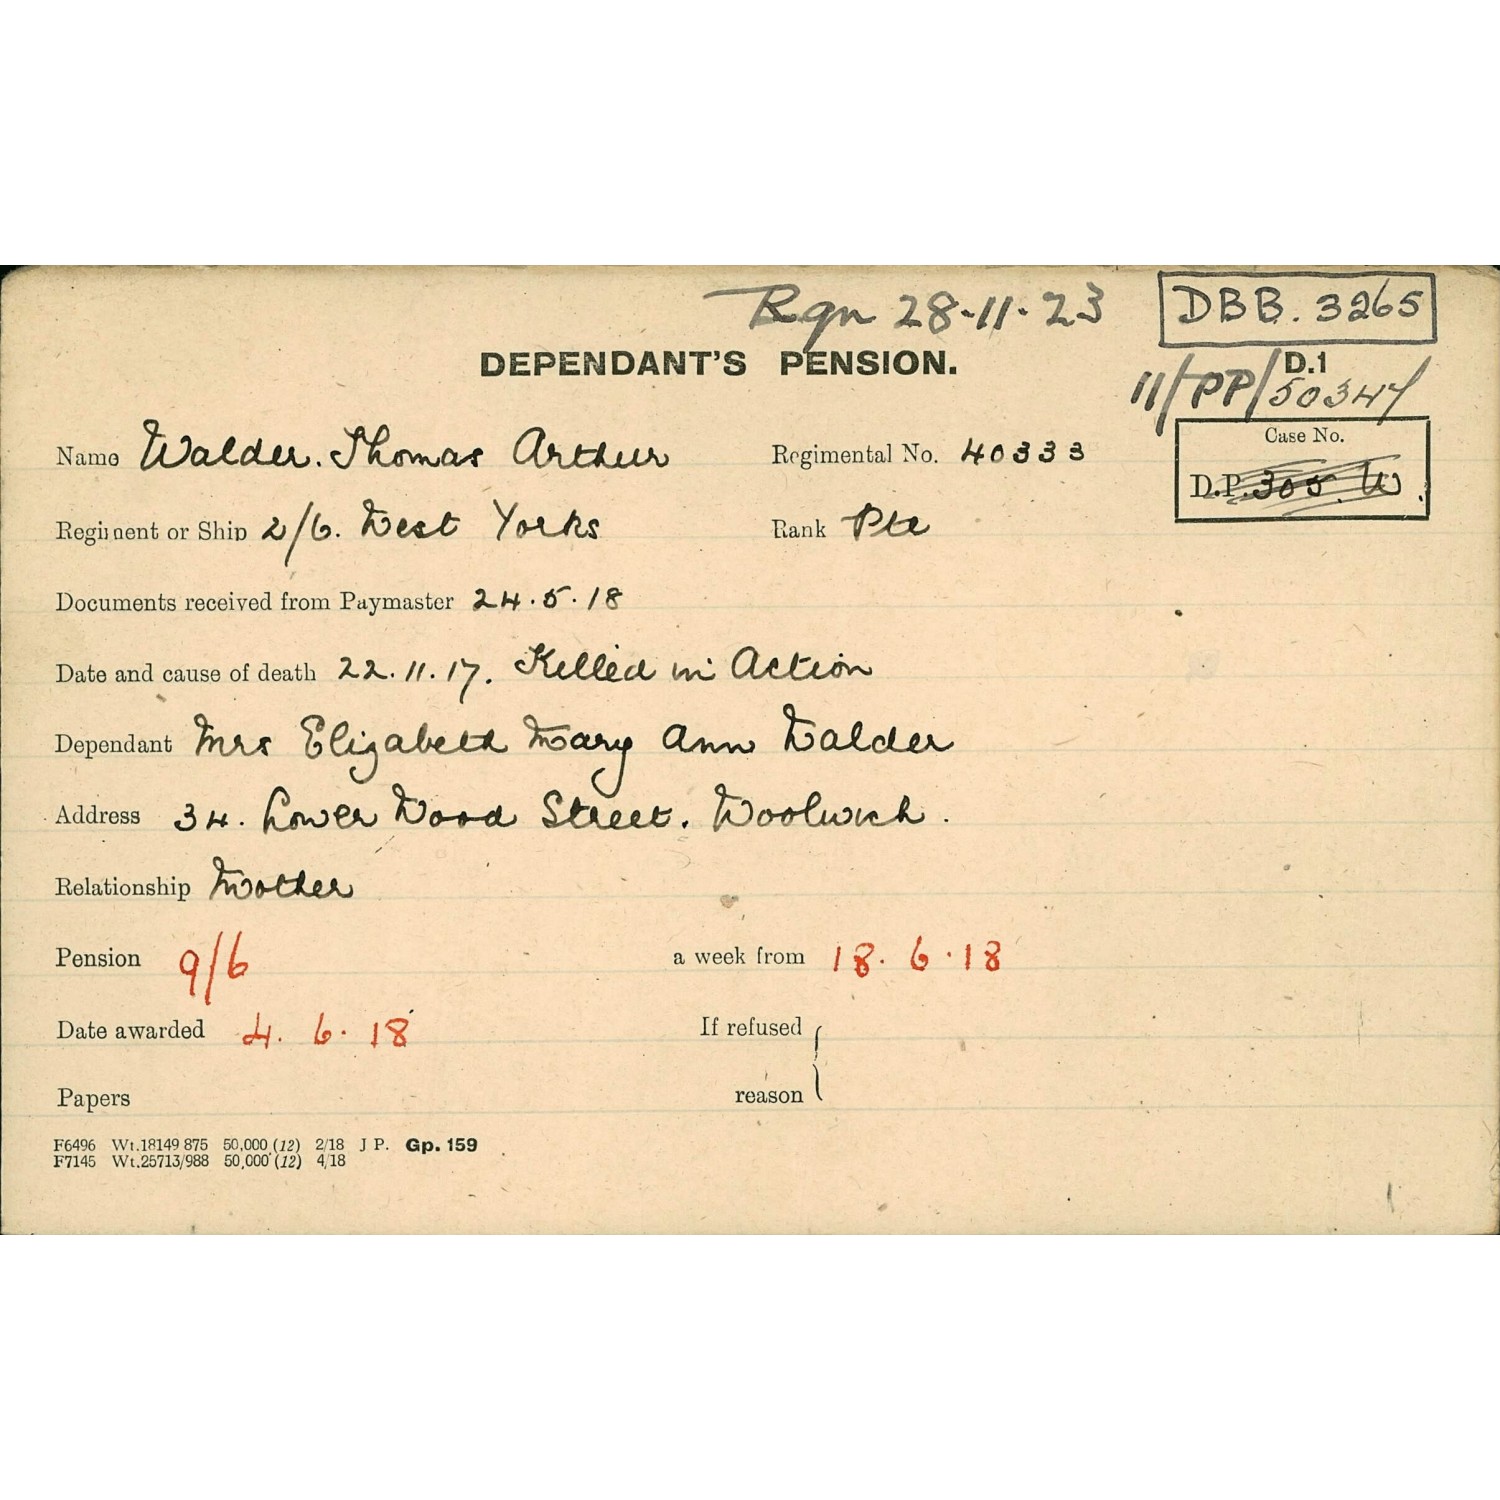 Rgn 28-11-23 DBB. 3265
DEPENDANT'S PENSION. D.1
11/PP/50347
Name Walder. Thomas Arthur Regimental No. 40333
Case No.
D.P. 305. W.
Regiment or Ship 2/6. West Yorks Rank Pte
Documents received from Paymaster 24.5.18
Date and cause of death 22.11.17. Killed in Action
Dependant Mrs Elizabeth Mary Ann Walder
Address 34. Lower Wood Street. Woolwich.
Relationship Mother
Pension 9/6 a week from 18.6.18
Date awarded 4.6.18 If refused
Papers reason
F6496 Wt.18149 875 50,000 (12) 2/18 J P. Gp. 159
F7145 Wt.25713/988 50,000 (12) 4/18